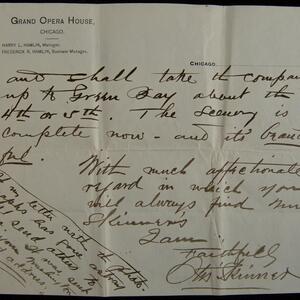 GRAND OPERA HOUSE,
CHICAGO.
HARRY L. HAMLIN, Manager.
FREDERICK R. HAMLIN, Business Manager.
CHICAGO,
and shall take the company
up to Green Bay about the
4th or 5th. The Scenery is
complete now - and it's beauti
ful.
With much affectionate
regard in which you
will always find
Skinner's
I am
Faithfully
Otis Skinner
my letter with the photo
graphs has gone astray
address.